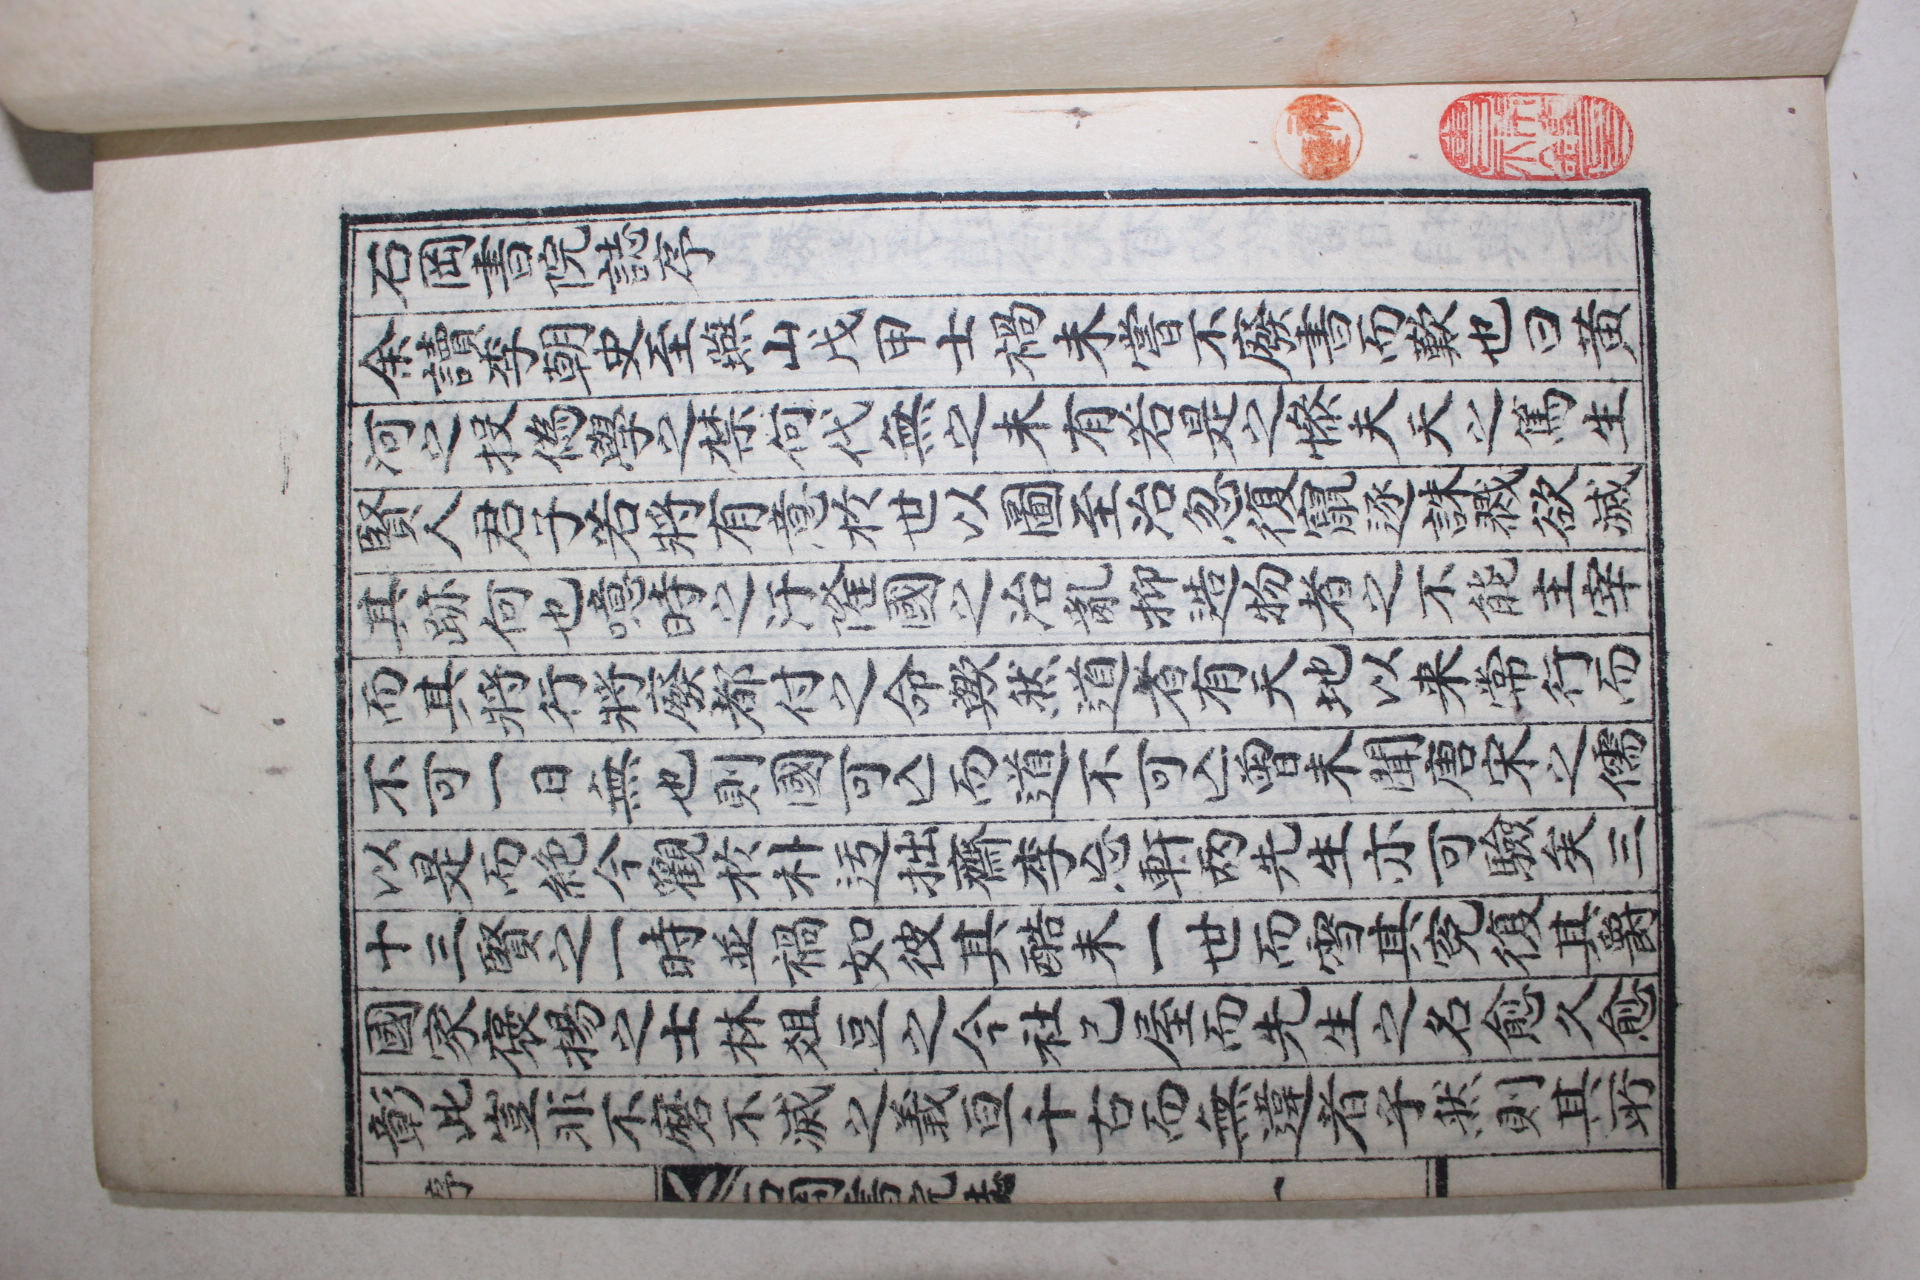 石岡書院誌序
余讀李朝史至燕山戊甲士禍未嘗不廢書而歎也曰黃
河之投偽學之禁何代無之未有若是之慘夫天之篤生
賢人君子若將有意於世以圖至治忽復竄逐誅戮欲滅
其跡何也噫時之汙隆國之治亂抑造物者之不能主宰
而其將行將廢都付之命歟然道者有天地以来常行而
不可一日無也則國可亡而道不可亡曾未聞唐宋之儒
以是而絶今觀於朴迃拙齋李忘軒兩先生亦可驗矣三
十三賢之一時並禍如彼其酷未一世而雪其冤復其爵
國家褒揚之士林俎豆之今社已屋而先生之名愈久愈
彰此豈非不磨不滅之義亘千古而無違者乎然則其所
序
石岡書院誌
一